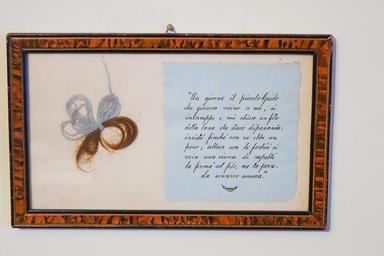 "Un giorno il piccolo Guido
che giocava vicino a me, si
interruppe e mi chiese un filo
della lana che stavo dipanando;
insisté finché non ne ebbe un
poco; allora con le forbici si
recise una ciocca di capelli
la fermò col filo, me la porse.
La conservo ancora."